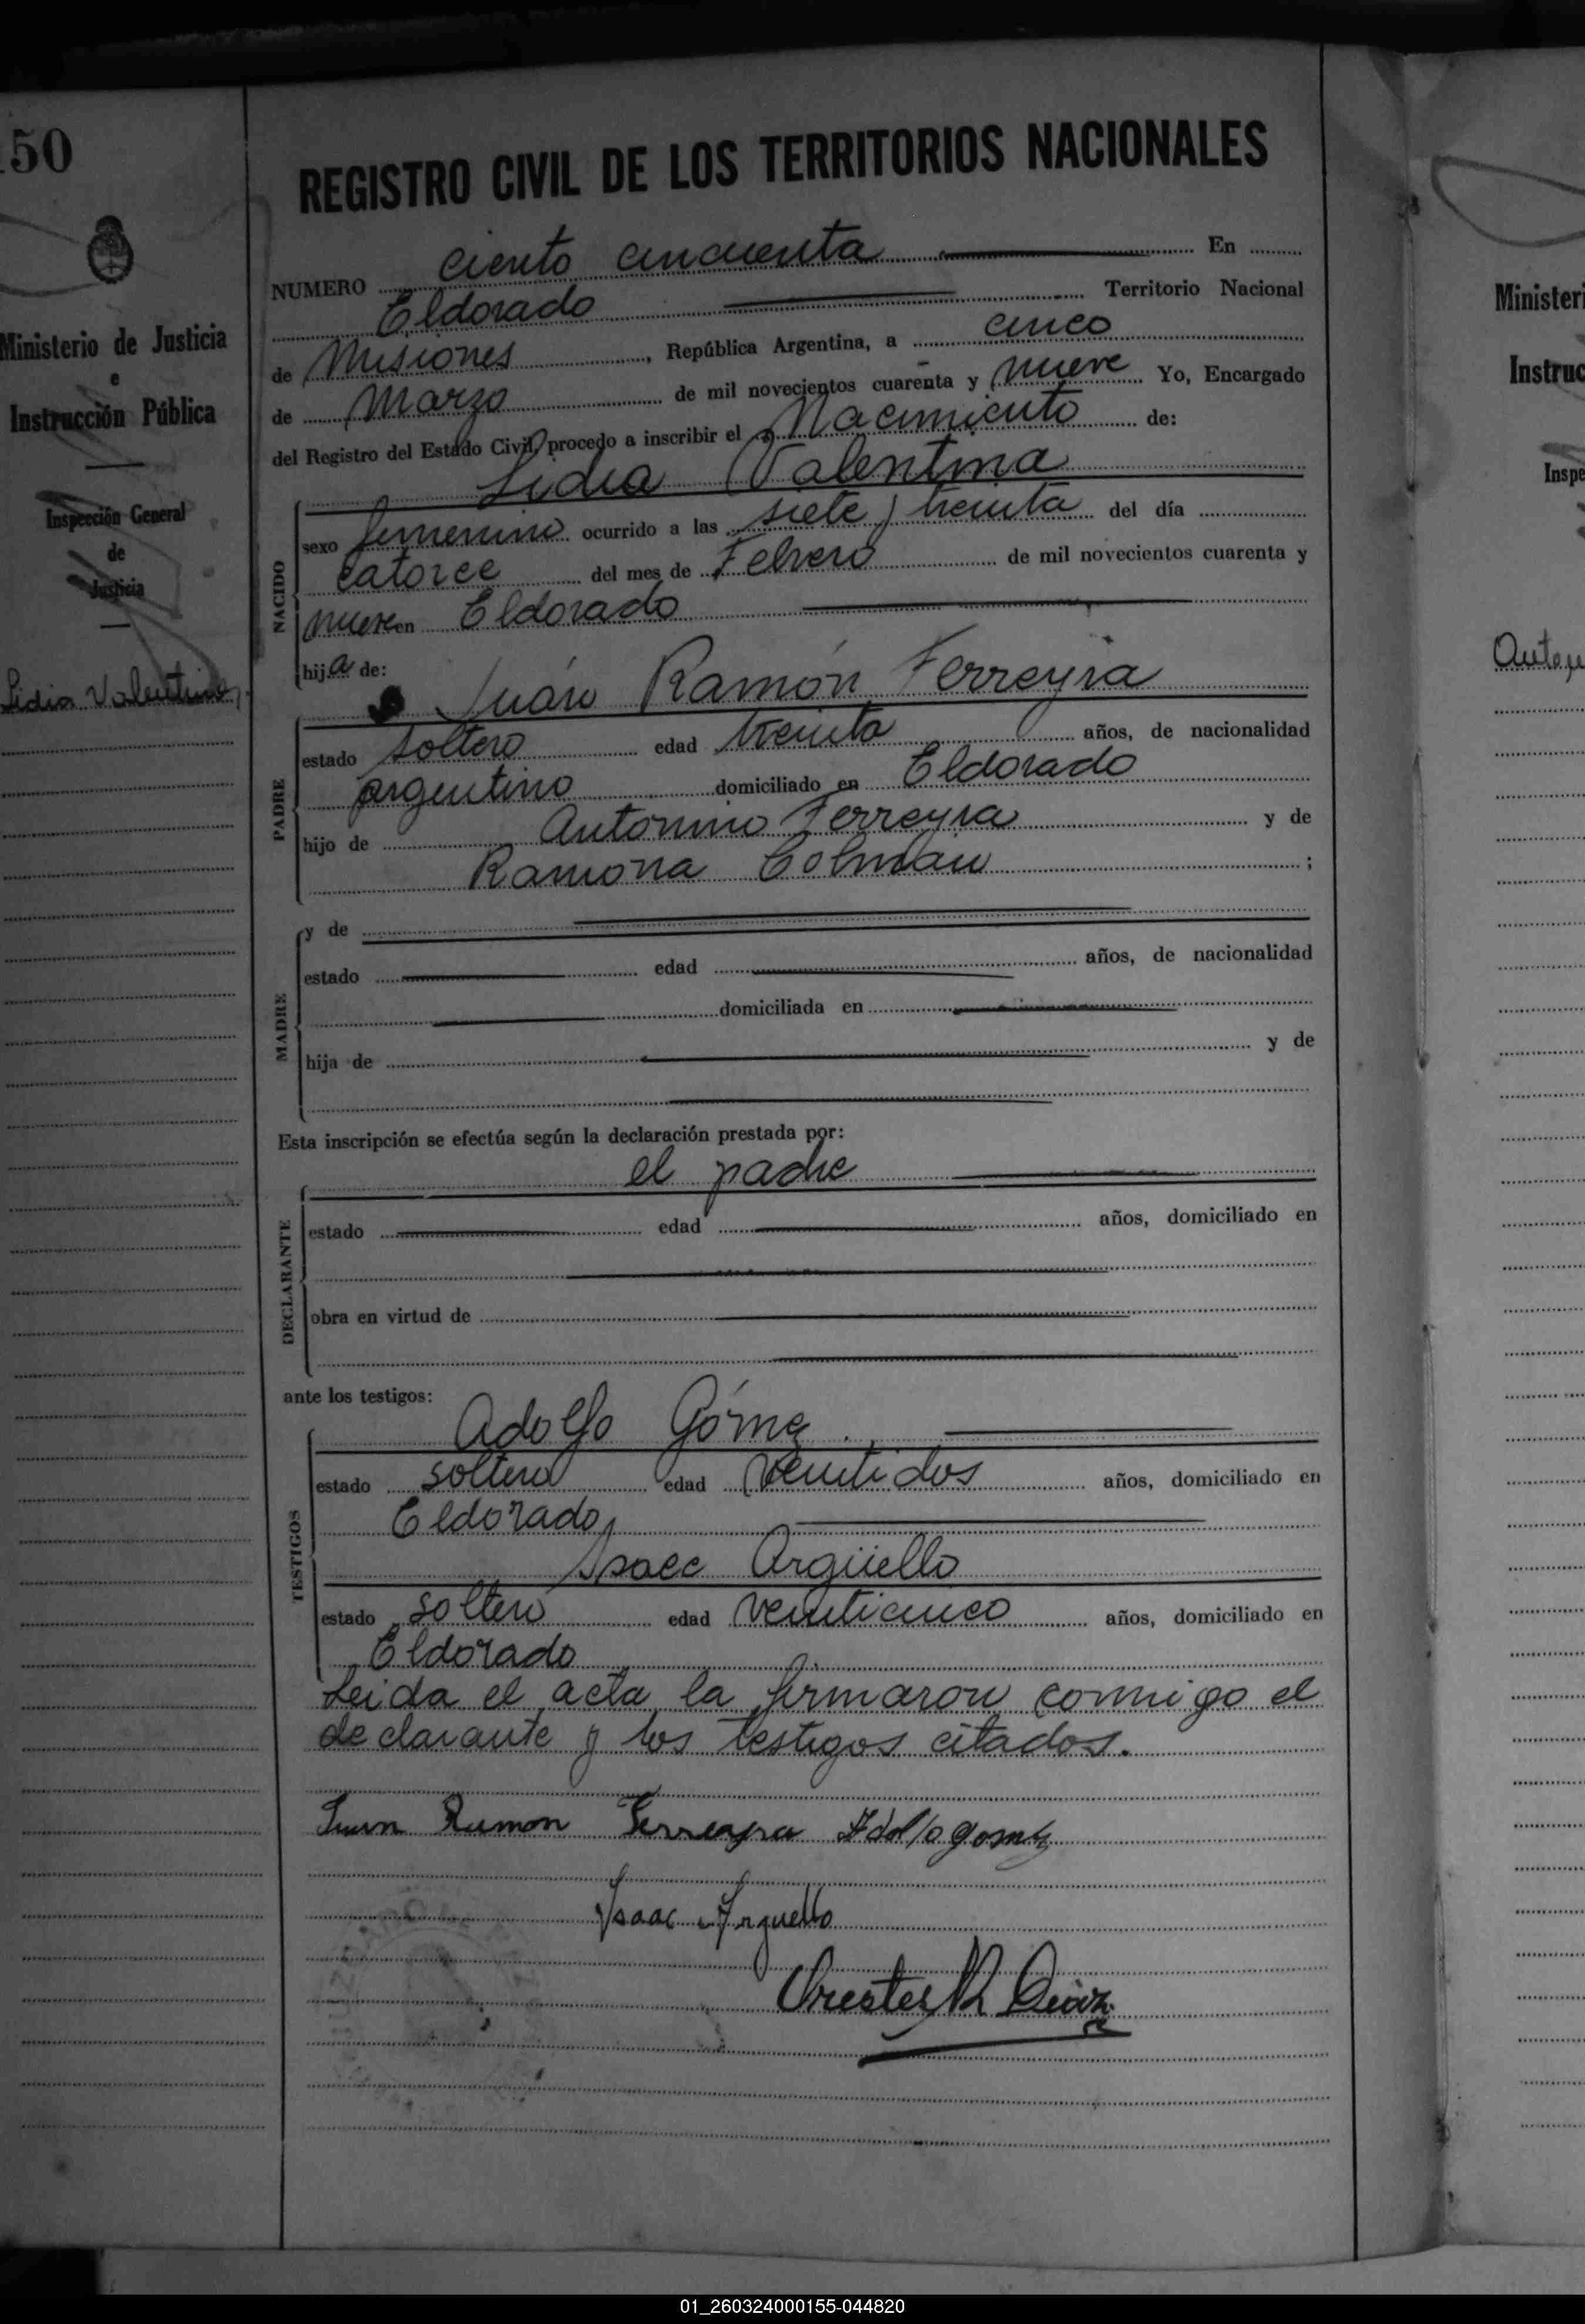 150
Ministerio de Justicia
e
Instrucción Pública
Inspección General
de
Justicia
Lidia Valentina
REGISTRO CIVIL DE LOS TERRITORIOS NACIONALES
NUMERO ciento cincuenta En
Eldorado Territorio Nacional
de Misiones, República Argentina, a cinco
de Marzo de mil novecientos cuarenta y nueve Yo, Encargado
del Registro del Estado Civil, procedo a inscribir el Nacimiento de:
Lidia Valentina
NACIDO
sexo femenino ocurrido a las siete y treinta del día
catorce del mes de Febrero de mil novecientos cuarenta y
nueve en Eldorado
hija de:
Juan Ramón Ferreyra
PADRE
estado soltero edad treinta años, de nacionalidad
argentino domiciliado en Eldorado
hijo de Antonino Ferreyra y de
Ramona Colman ;
MADRE
y de
estado edad años, de nacionalidad
domiciliada en
hija de y de
Esta inscripción se efectúa según la declaración prestada por:
el padre
DECLARANTE
estado edad años, domiciliado en
obra en virtud de
ante los testigos:
Adolfo Gómez
TESTIGOS
estado soltero edad veintidos años, domiciliado en
Eldorado
Isaac Argüello
estado soltero edad veinticinco años, domiciliado en
Eldorado
Leida el acta, la firmaron conmigo el
declarante y los testigos citados.
Juan Ramon Ferreyra Adolfo gomez
Isaac Arguello
Orestes R Diaz
Ministeri
Instruc
Inspe
01_260324000155-044820